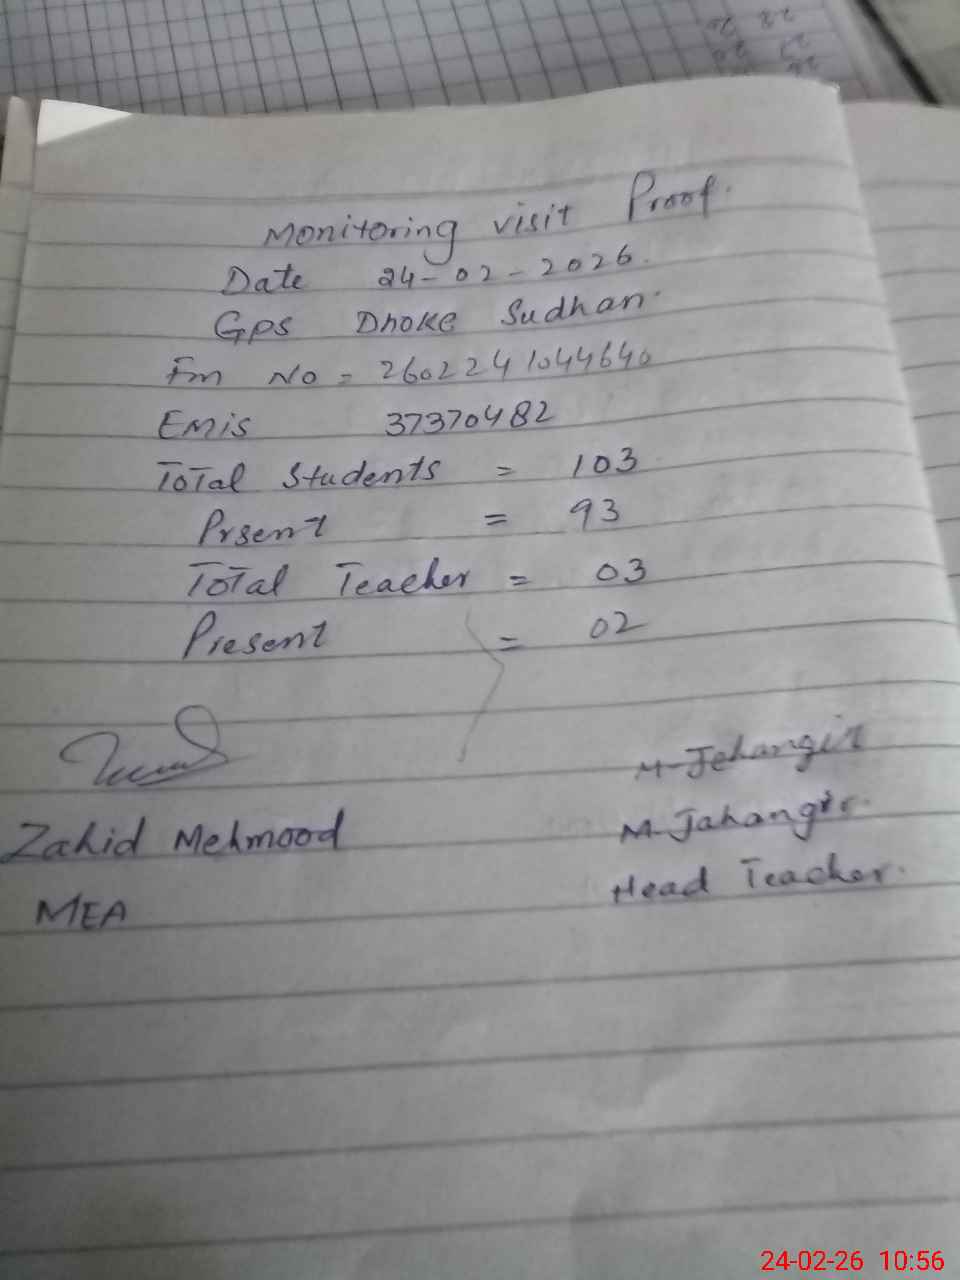 Monitoring visit Proof.
Date 24-02-2026.
Gps Dhoke Sudhan.
Fm No = 2602241044640
Emis 37370482
Total Students = 103
Prsent = 93
Total Teacher = 03
Present = 02
M-Jehangir
Zahid Mehmood M-Jahangir.
MEA Head Teacher.
24-02-26 10:56